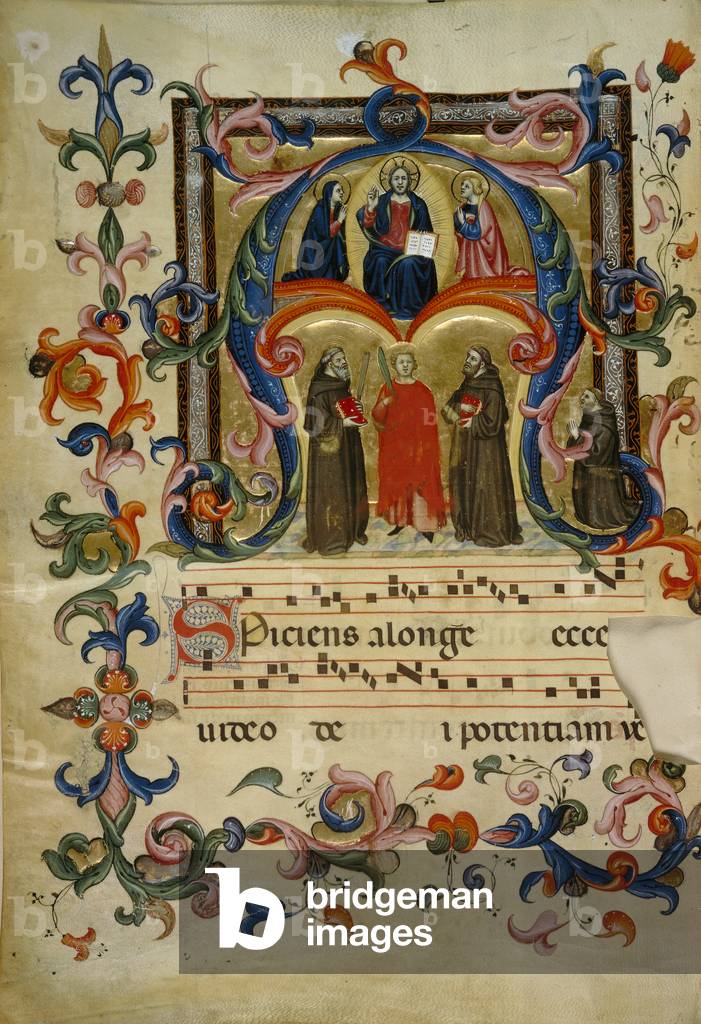 ASpiciens alonge ecce
uideo de i potentiam ve
bridgeman
images